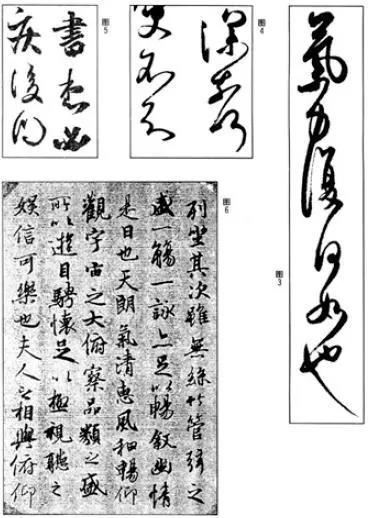 图3
氣力復何如也
图4
图5
图6
列坐其次雖無絲竹管弦之
盛一觴一詠亦足以暢敘幽情
是日也天朗氣清惠風和暢仰
觀宇宙之大俯察品類之盛
所以遊目騁懷足以極視聽之
娛信可樂也夫人之相與俯仰